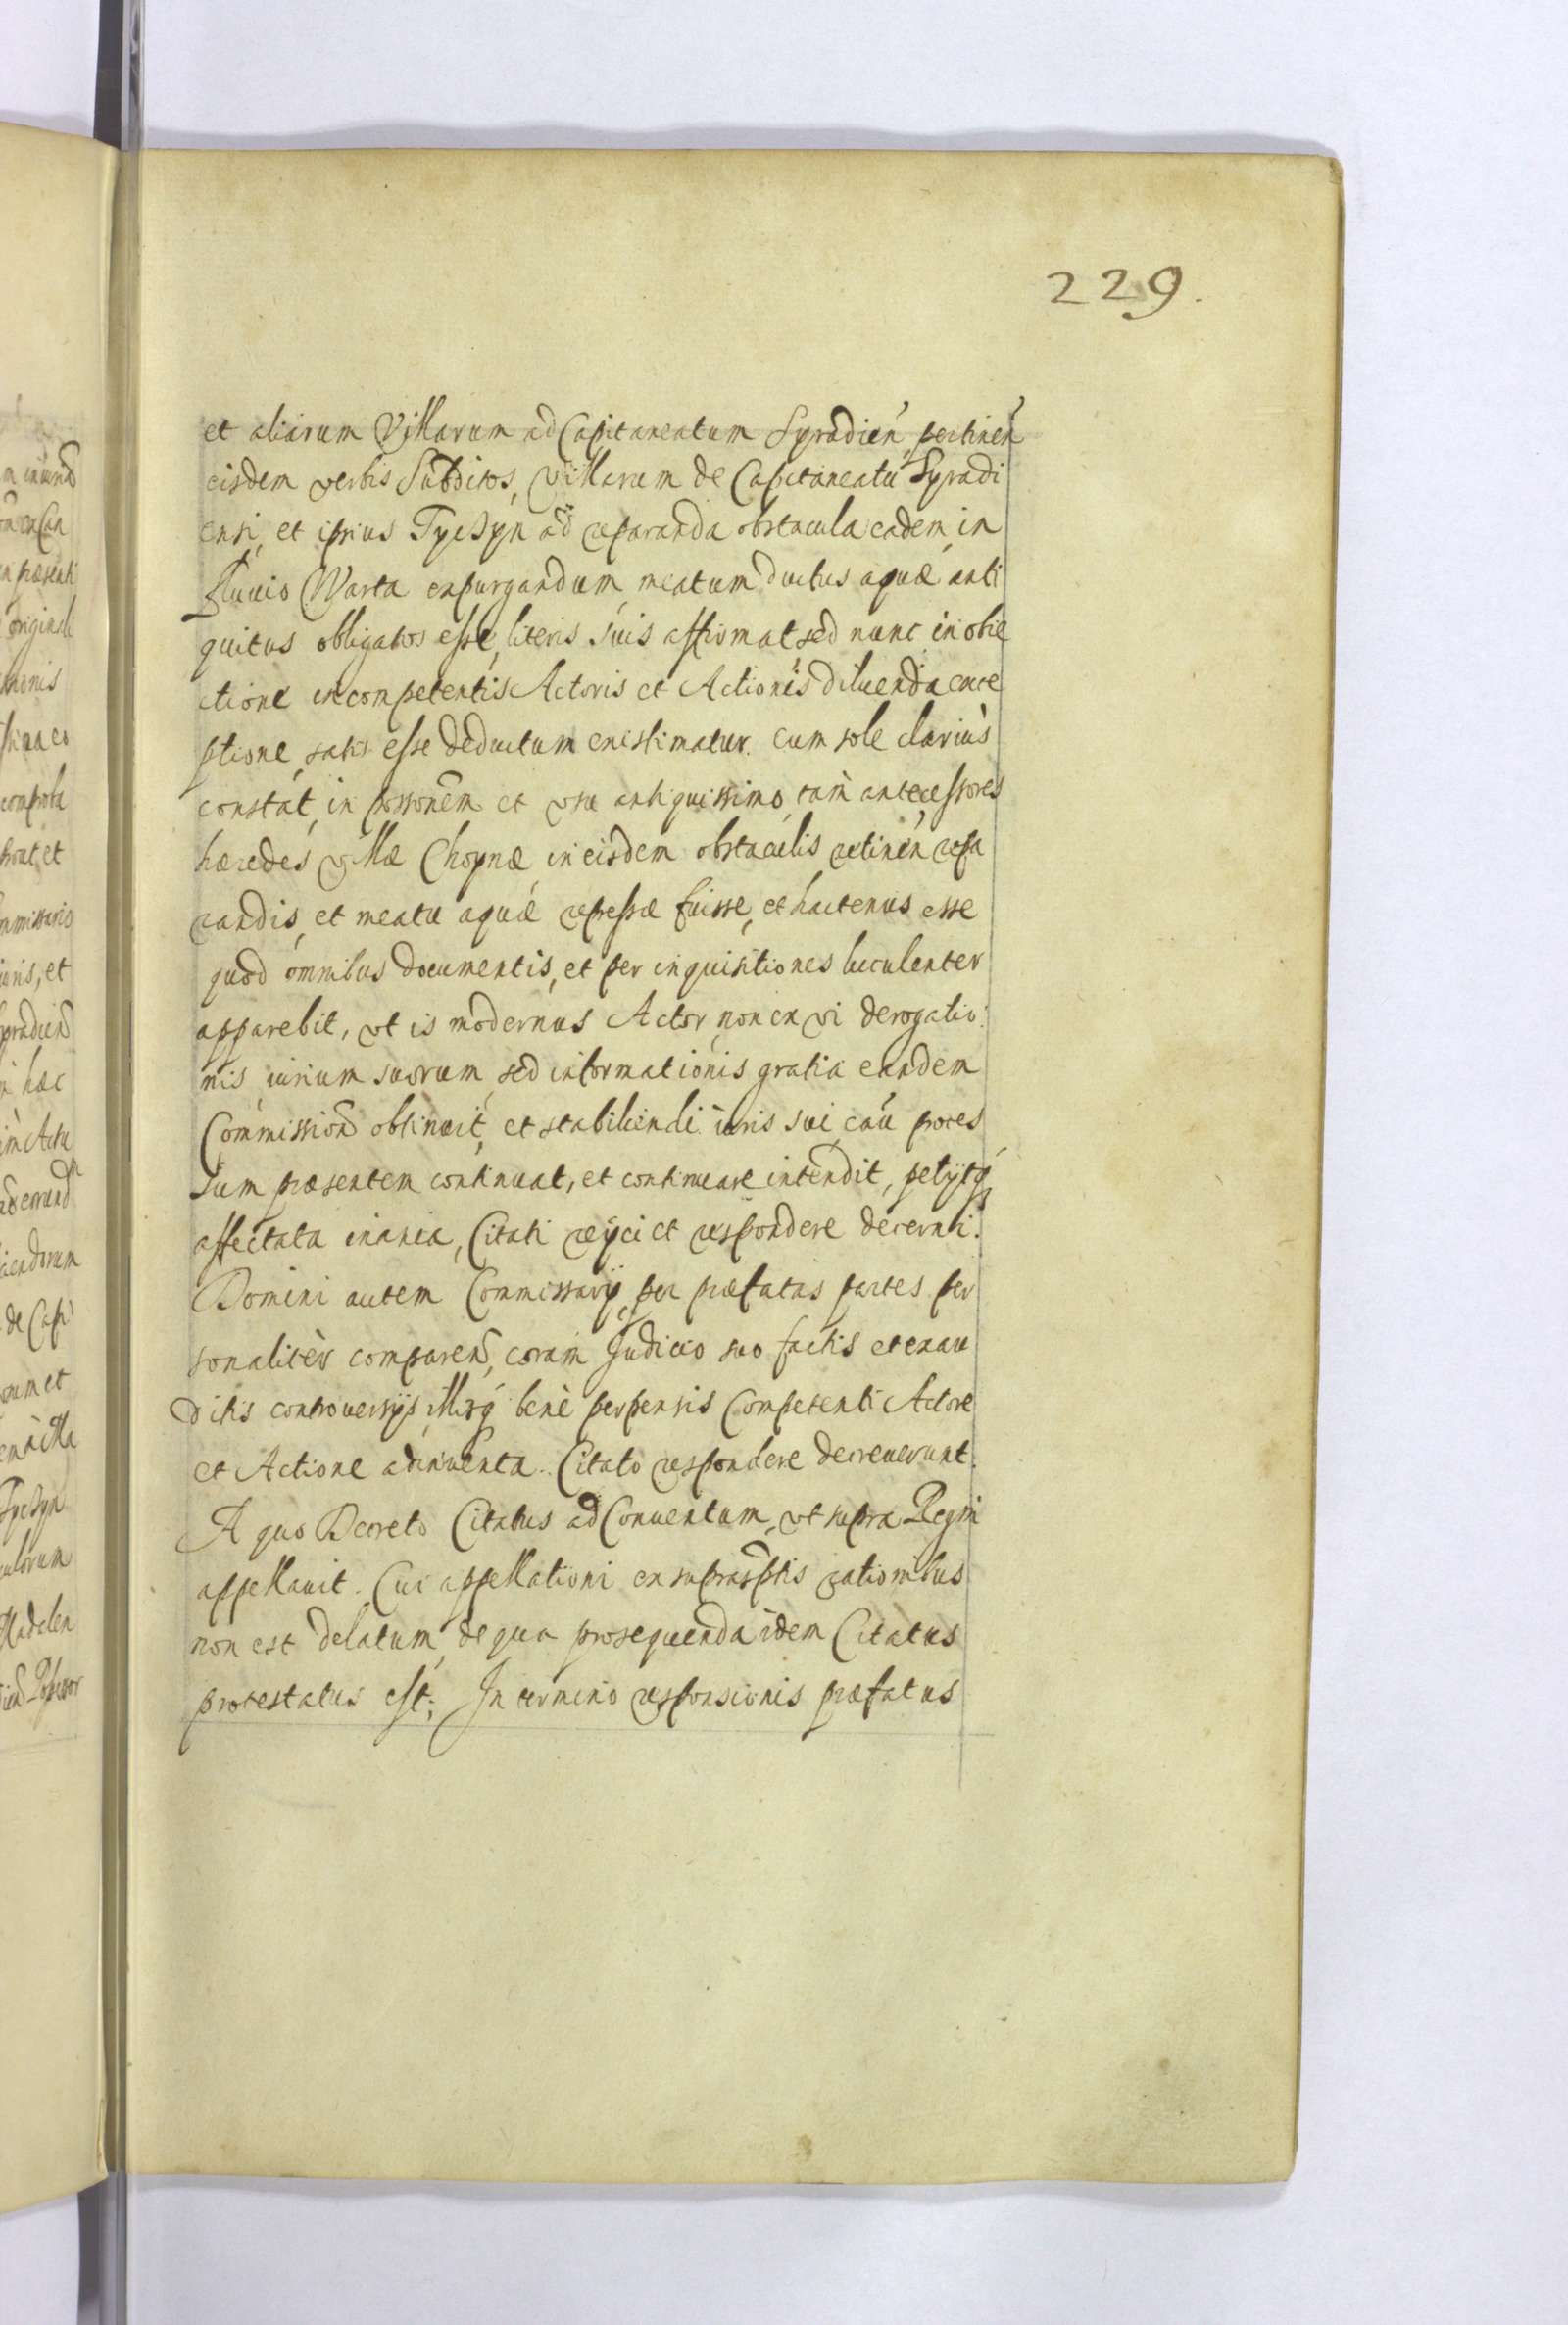 229.
et aliarum Villarum ad Capitaneatum Syradien pertinen
eisdem verbis Subditos, Villarum de Capitaneatu Syradi
ensi, et ipsius Tyczyn ad reparanda obstacula eadem, in
fluuio Warta expurgandum meatum ductus aquæ anti
quitus obligatos esse, literis suis affirmat, sed nunc in obie
ctione incompetentis Actoris et Actionis diluenda exce
ptione, satis esse deductum existimatur. cum sole clarius
constat, in possonem et usu antiquissimo, tam antecessores
hæredes villæ Choynæ in eisdem obstaculis retinen repa
randis, et meatu aquæ repressæ fuisse, et hactenus esse
quod omnibus documentis, et per inquisitiones luculenter
apparebit, vt is modernus Actor, non ex vi derogatio
nis iurium suorum, sed informationis gratia eandem
Commission obtinuit, et stabiliendi iuris sui cau proces
sum præsentem continuat, et continuare intendit, petijtq
affectata inania, Citati reijci et respondere decerni.
Domini autem Commissarij, per præfatas partes per
sonaliter comparen, coram Judicio suo factis et exau
ditis controuersijs, illisq bene perpensis Competenti Actore
et Actione adinuenta. Citato respondere decreuerunt.
A quo Decreto Citatus ad Conuentum, vt supra Regni
appellauit. Cui appellationi ex suprasptis rationibus
non est delatum, de qua prosequenda idem Citatus
protestatus est; In termino responsionis præfatus